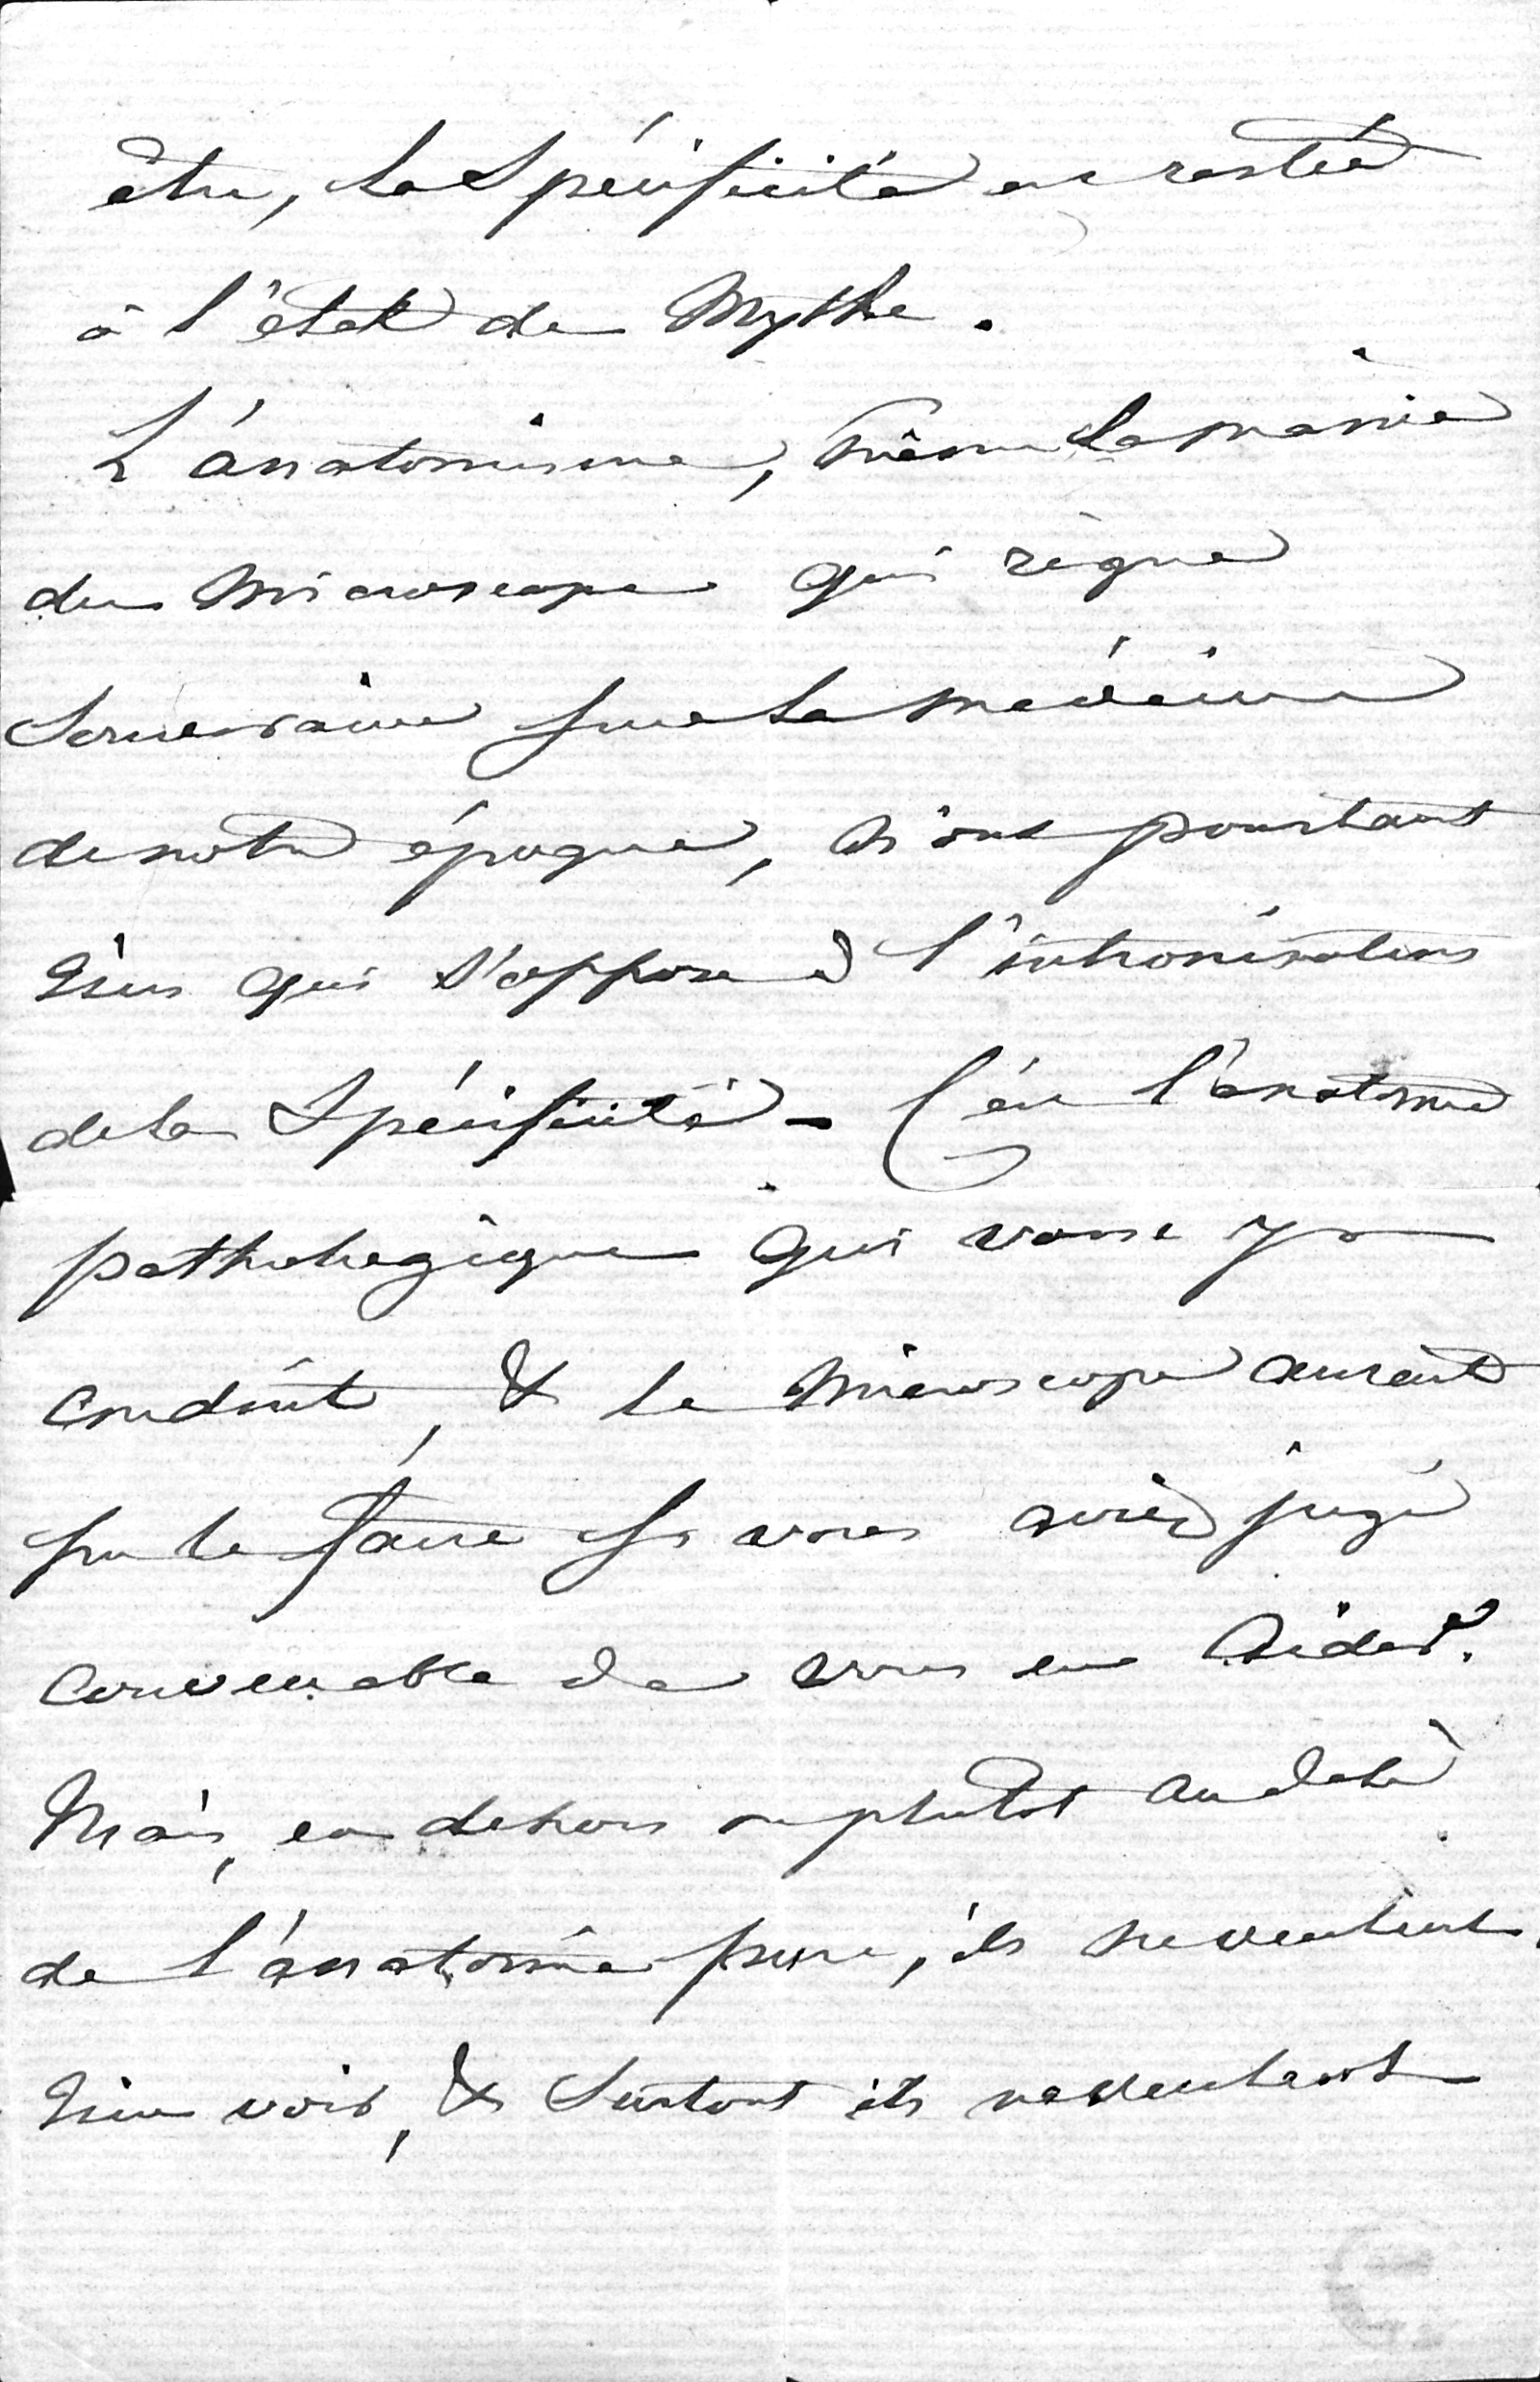 être, la Spécificité est restée
à l'état de Mythe.
L'anatomisme, même la manie
du Microscope qui règne
Souveraine sur la médecine
de notre époque, n'ont pourtant
rien qui s'oppose à l'intronisation
de la Spécificité - C'est l'anatomie
pathologique qui vous y a
conduit, & le Microscope aurait
pu le faire si vous aviez jugé
convenable de vous en Aider.
Mais, en dehors ou plutôt au delà
de l'anatomie pure, ils ne veulent
rien voir, & Surtout ils ne veulent